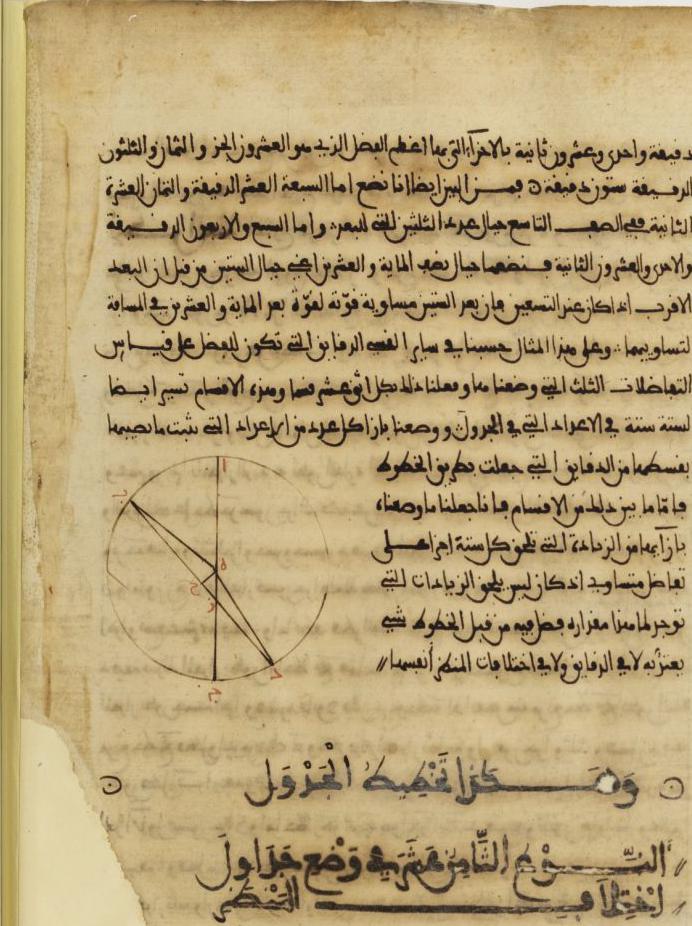 دقيقة واحدى وعشرون ثانية بالاجزاء التى بها اعظم الفضل الذى هو العشرون الجزء والثمان والثلثون
الدقيقة ستون دقيقة فمن البين ايضا انا نضع اما السبعة العشر الدقيقة والثمان العشرة
الثانية ففى الصف التاسع حيال عدد الثلثين التى للبعد واما السبع والاربعون الدقيقة
والاحدى والعشرون الثانية فنضعها حيال نصف الماية والعشرين اعنى حيال الستين من قبل ان البعد
الاقرب اذا كان عند التسعين فان بعد الستين مساوية قوته لقوة بعد الماية والعشرين فى المسافة
لتساويهما وعلى هذا المثال حسبنا فى ساير القسى الدقايق التى تكون للفضل على قياس
التفاضلات الثلث التى وضعنا ها وفعلنا ذلك بكل اثنى عشر قسما وهذه الاقسام تصير ايضا
لستة ستة فى الاعداد التى فى الجدول ووضعنا بازا كل عدد من الاعداد التى تثبت ما نصيبها
بقسطها من الدقايق التى جعلت بطريق الخطوط
فاما ما بين ذلك من الاقسام فانا جعلنا ما وضعناه
بازايها من الزيادة التى تلحق كل ستة اجزا على
تفاضل متساوٍ اذ كان ليس يلحق الزيادات التى
توجد لما هذا مقداره فضل فيه من قبل الخطوط شى
يعتد به لا فى الدقايق ولا فى اختلافات المنظر أنفسها
ا
ب
ه
ح
وَهَكَذَا تَخْطِيطُ الْجَدْوَلِ
النَّوْعُ الثَّامِنُ عَشَرَ فِي وَضْعِ جَدَاوِلَ
اخْتِلَافِ الْمَنْظَرِ